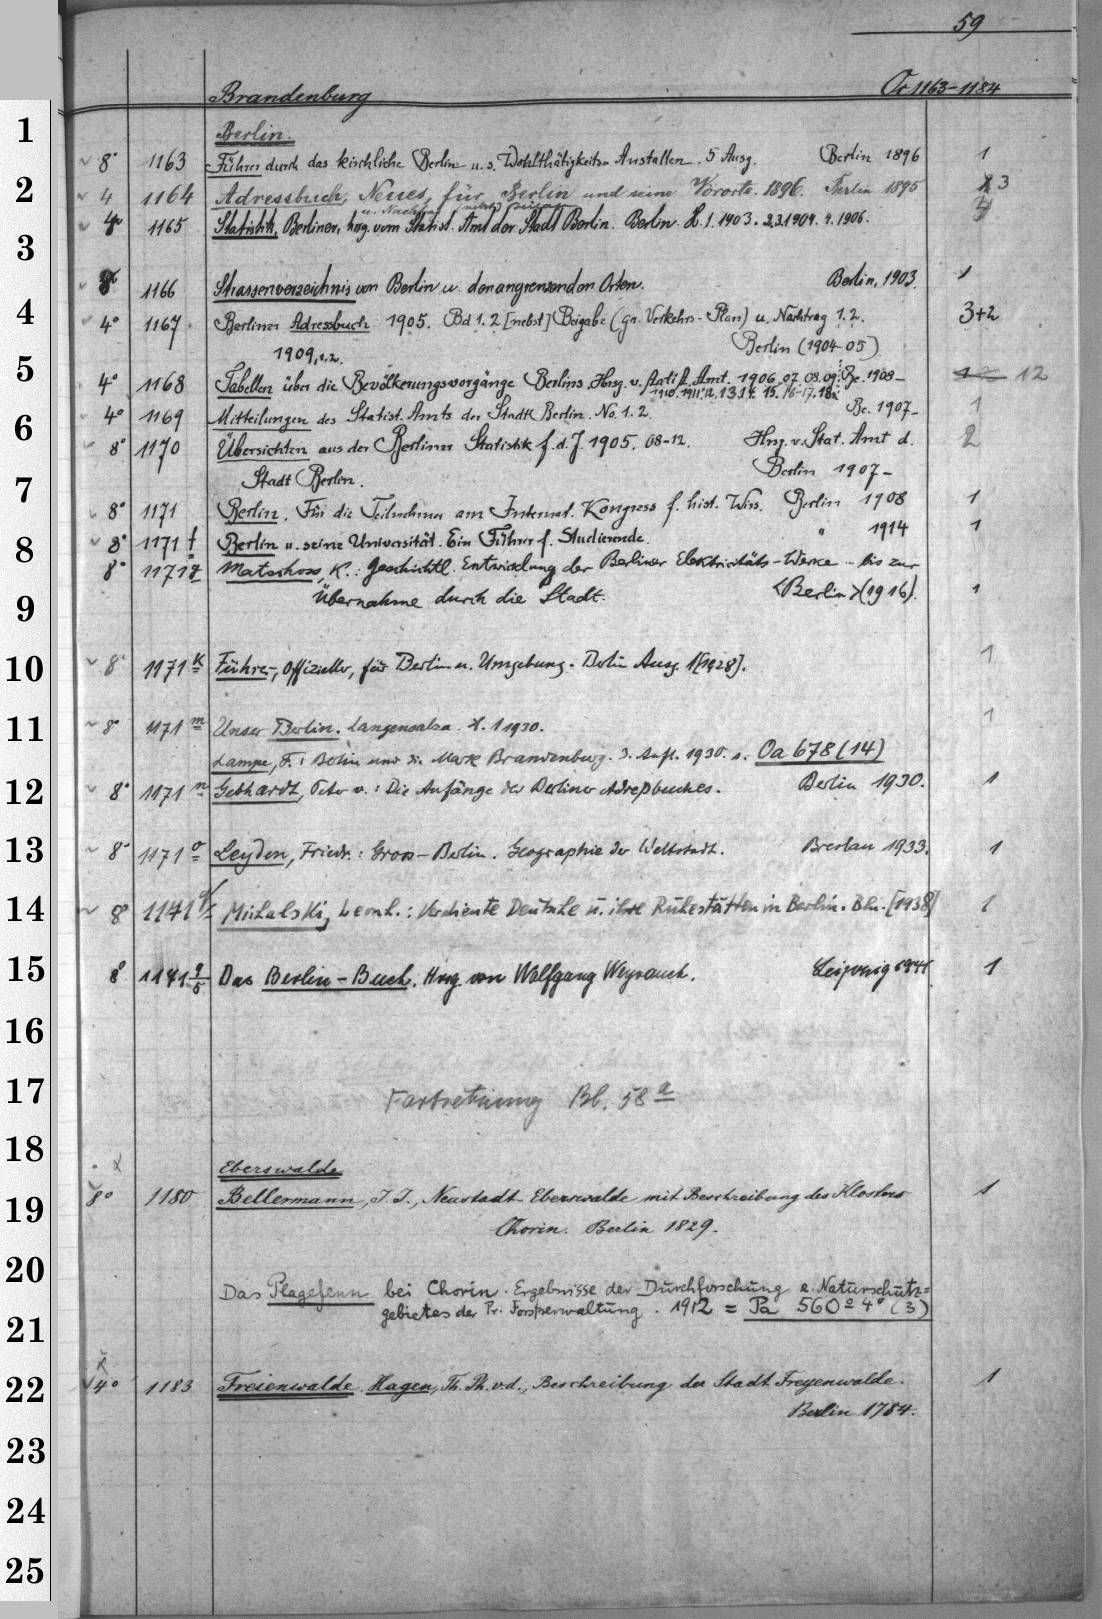 59
Brandenburg Oc 1163-1184
1
Berlin.
8° 1163 Führer durch das kirchliche Berlin u. s. Wohlthätigkeits-Anstalten. 5 Ausg. Berlin 1896 1
2
4 1164 Adressbuch, Neues, für Berlin und seine Vororte. 1896. Berlin 1895 3
u. Nachtr
4° 1165 Statistik, Berliner, hrsg. vom Statist. Amt der Stadt Berlin. Berlin. H. 1. 1903. 2.3.1904. 4.1906. 4
3
8° 1166 Strassenverzeichnis von Berlin u. den angrenzenden Orten. Berlin, 1903 1
4
4° 1167 Berliner Adressbuch 1905. Bd 1.2 [nebst] Beigabe (gr. Verkehrs-Plan) u. Nachtrag 1.2. 3+2
1909,1.2. Berlin (1904-05)
5
4° 1168 Tabellen über die Bevölkerungsvorgänge Berlins. Hrsg. v. Statist. Amt. 1906.07.08.09. Be. 1908- 12
1910. 1911. 12. 13. 14. 15. 16-17. 18.
4° 1169 Mitteilungen des Statist. Amts der Stadt Berlin. No. 1. 2. Be. 1907- 1
6
8° 1170 Übersichten aus der Berliner Statistik f. d. J. 1905. 08-12. Hrsg. v. Stat. Amt d. 2
Stadt Berlin. Berlin 1907-
7
8° 1171 Berlin. Für die Teilnehmer am Internat. Kongress f. hist. Wiss. Berlin 1908 1
8° 1171 f Berlin u. seine Universität. Ein Führer f. Studierende. " 1914 1
8
8° 1171 g Matschoss, K.: Geschichtl. Entwicklung der Berliner Elektricitäts-Werke .. bis zur
Übernahme durch die Stadt. <Berlin> (1916). 1
9
10
8° 1171 k Führer, Offizieller, für Berlin u. Umgebung. Berlin Ausg. 1 [1928]. 1
11
8° 1171 m Unser Berlin. Langensalza. H. 1 1930. 1
Lampe, F.: Berlin und die Mark Brandenburg. 3. Aufl. 1930. s. Oa 678 (14)
12
8° 1171 n Gebhardt, Peter v.: Die Anfänge des Berliner Adreßbuches. Berlin 1930. 1
13
8° 1171 o Leyden, Friedr.: Gross-Berlin. Geographie der Weltstadt. Breslau 1933. 1
14
8° 1171 Michalski, Leonh.: Verdiente Deutsche u. ihre Ruhestätten in Berlin. Bln. [1938] 1
15
8° 1171 Das Berlin-Buch. Hrsg. von Wolfgang Weyrauch. Leipzig 1941 1
16
17
Fortsetzung Bl. 58 a
18
Eberswalde
8° 1180 Bellermann, J. J., Neustadt-Eberswalde mit Beschreibung des Klosters 1
19
Chorin. Berlin 1829.
20
Das Plagefenn bei Chorin. Ergebnisse der Durchforschung e. Naturschutz=
gebietes der Pr. Forstverwaltung. 1912 = Pa 560 a 4° (3)
21
22
4° 1183 Freienwalde. Hagen, Th. Ph. v. d., Beschreibung der Stadt Freyenwalde. 1
Berlin 1784.
23
24
25